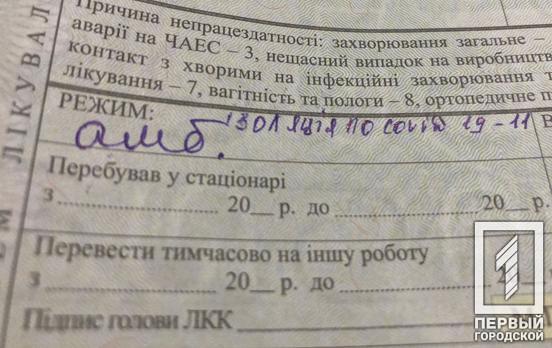 Причина непрацездатності: захворювання загальне –
аварії на ЧАЕС – 3, нещасний випадок на виробництв
контакт з хворими на інфекційні захворювання т
лікування – 7, вагітність та пологи – 8, ортопедичне п
РЕЖИМ: ізоляція по covid 19 - 11 В
амб.
Перебував у стаціонарі
з 20__ р. до 20__ р.
Перевести тимчасово на іншу роботу
з 20__ р. до
Підпис голови ЛКК
ЛІКУВАЛ
1
ПЕРВЫЙ
ГОРОДСКОЙ